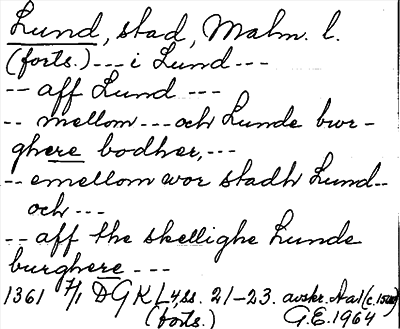 Lund, stad, Malm. l.
(forts.) --- i Lund ---
-- aff Lund ---
-- mellom --- och Lunde bur-
ghere bodher, ---
-- emellom wor stadh Lund --
och ---
-- aff the skellighe Lunde
burghere ---
1361 7/1 DGKL 4, ss. 21-23. avskr. Aa1 (c. 1500)
(forts.) G.E. 1964